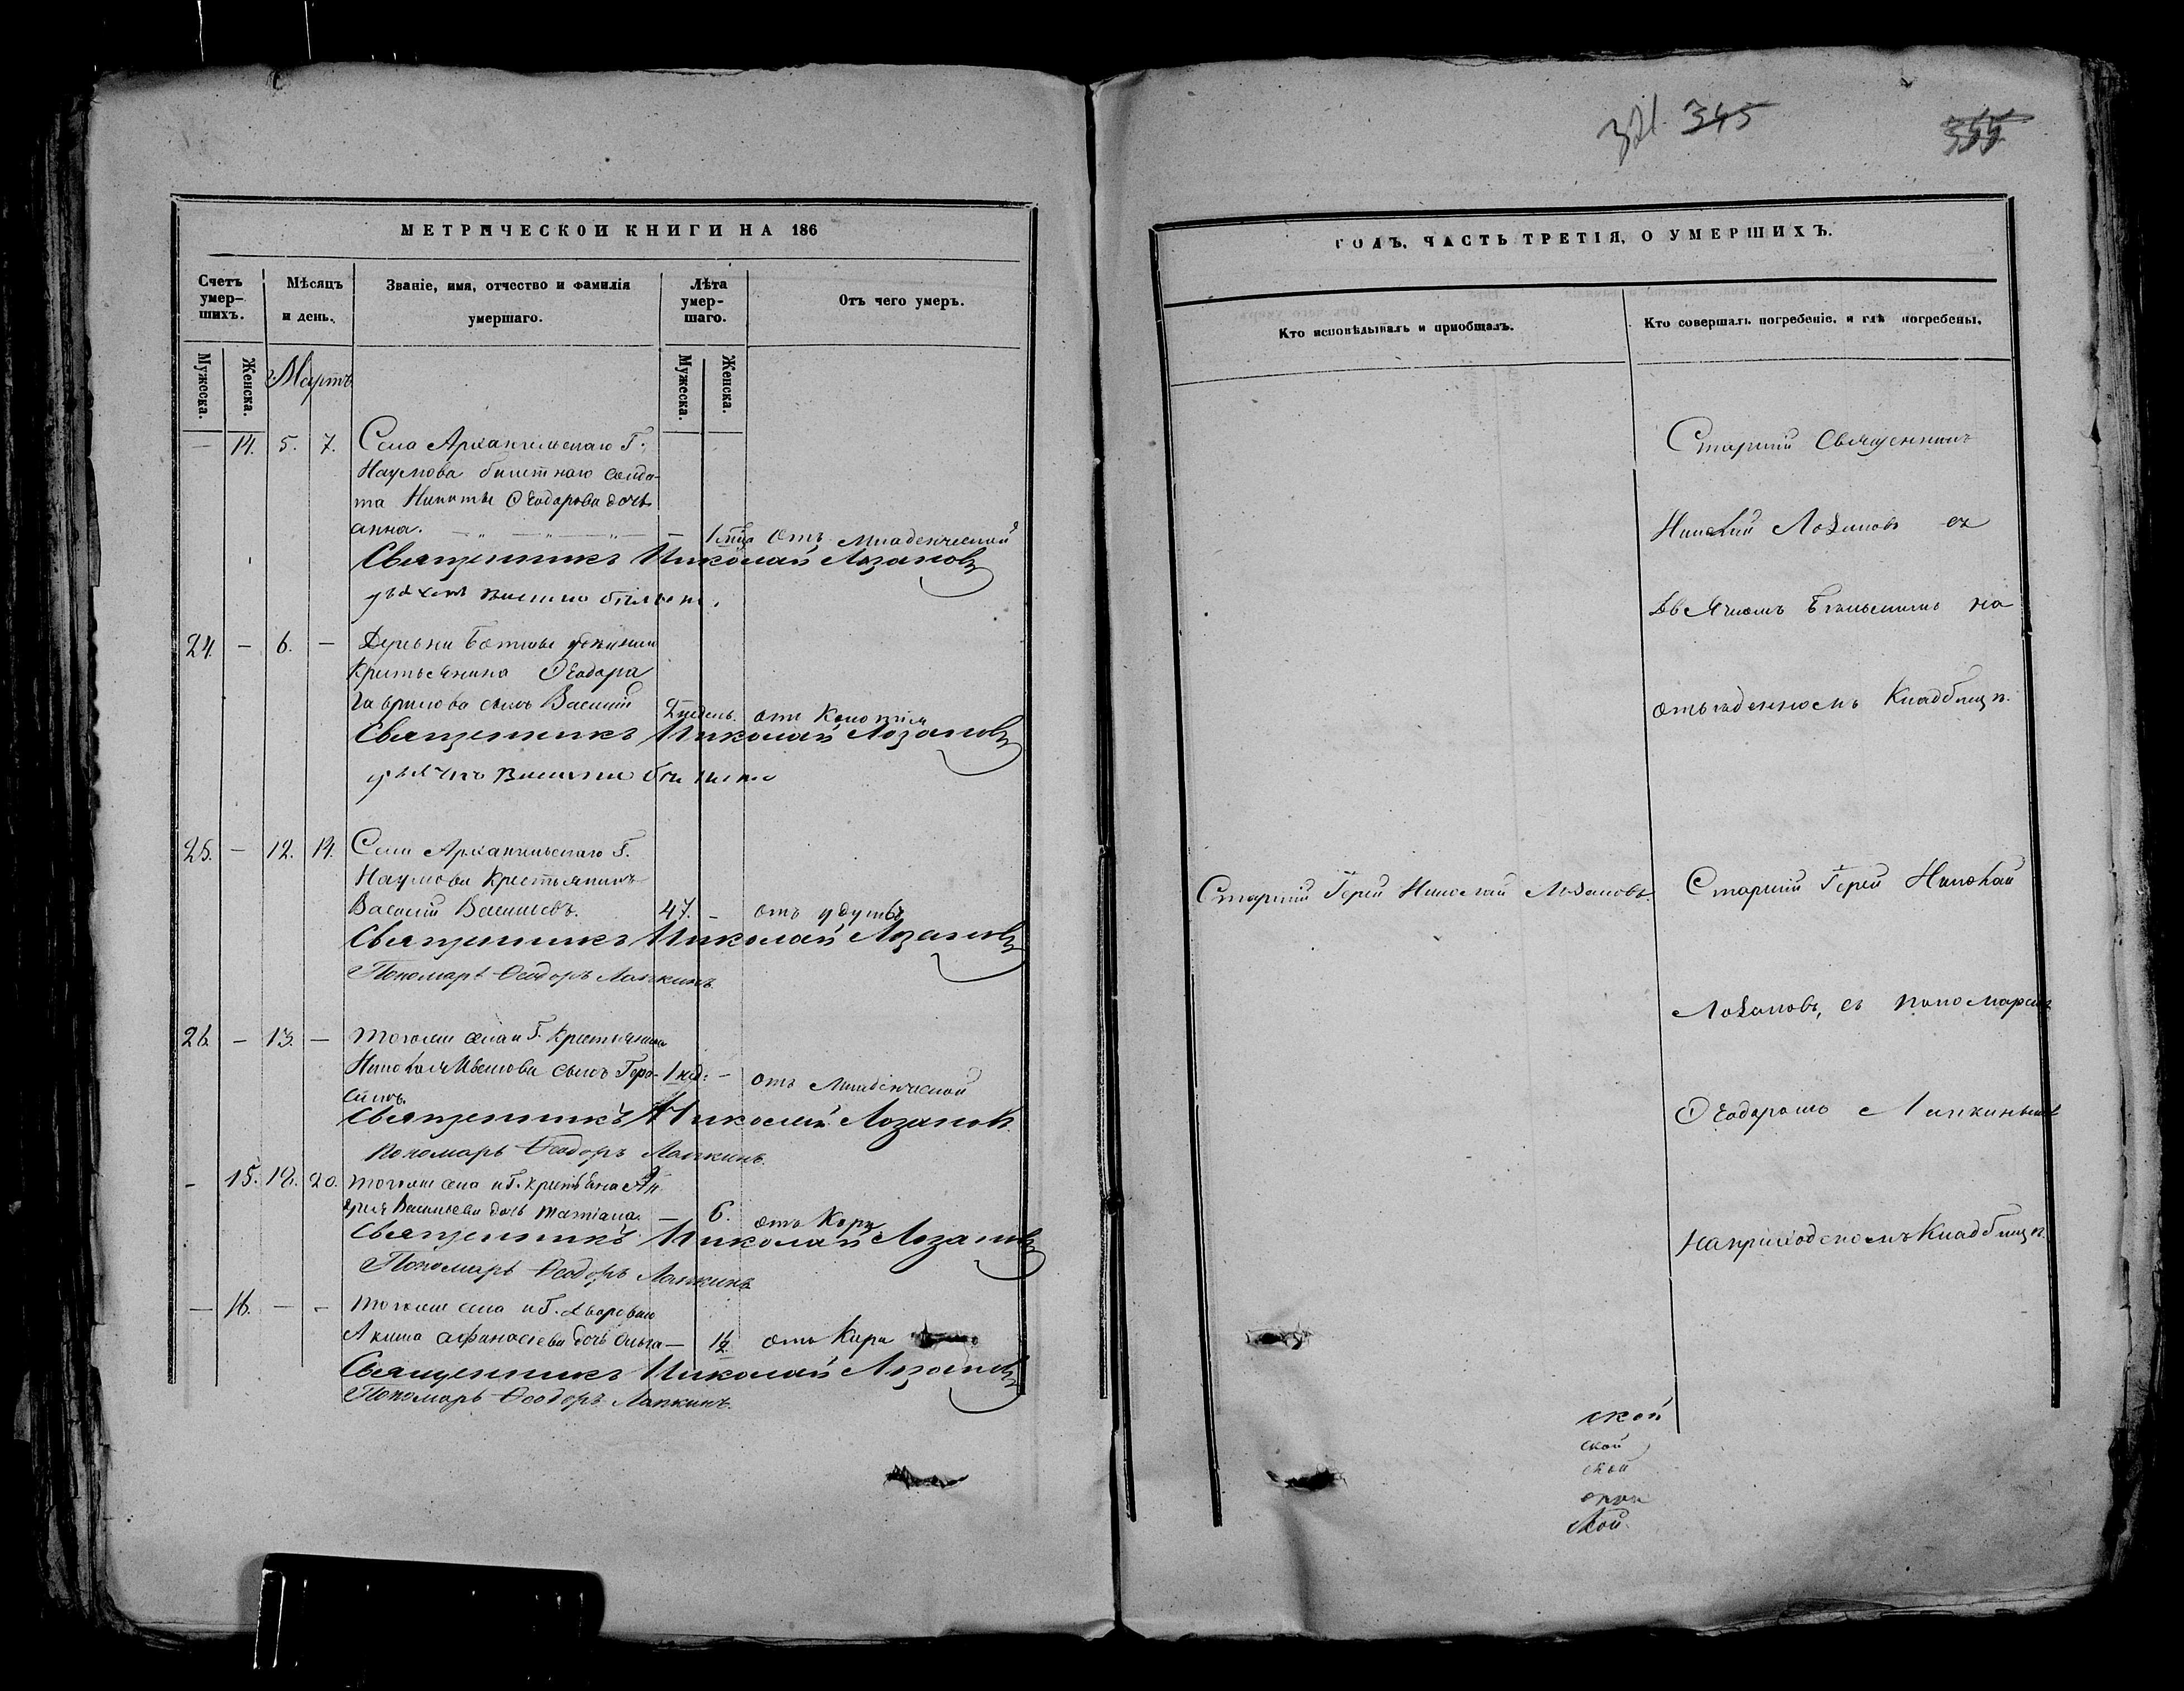 МЕТРИЧЕСКОЙ КНИГИ НА 186
Счетъ умер-шихъ.
Мѣсяцъ и день.
Званіе, имя, отчество и фамилія умершаго.
Лѣта умер-шаго.
Отъ чего умеръ.
Мужеска.
Женска.
Мартъ
Мужеска.
Женска.
— 14. 5. 7. Села Архангельскаго Г.
Наумова билетнаго солда-
та Никиты Ѳеодорова дочь
анна. — 1 отъ младенческой
Священникъ Николай Лозановъ
24. — 6. — Деревни
Крестьянина Ѳеодора
Гаврилова сынъ Василій отъ
Священникъ Николай Лозановъ
25. — 12. 14. Села Архангельскаго Г.
Наумова Крестьянинъ
Василій Васильевъ. 47. — отъ удушья
Священникъ Николай Лозановъ
Пономарь Ѳеодоръ Лапкинъ.
26. — 13. — тогоже села и Г. Крестьянина
Николая сынъ Гера-
симъ. 1 нед: — отъ Младенческой
Священникъ Николай Лозановъ
Пономарь Ѳеодоръ Лапкинъ.
— 15. 18. 20. тогоже села и Г. крестьянина
Васильева дочь татіана. — 6. отъ Кори
Священникъ Николай Лозановъ
Пономарь Ѳеодоръ Лапкинъ
— 16. — — тогоже села и Г. дворового
Акима афанасьева дочь ольга — 1½ отъ Кори
Священникъ Николай Лозановъ
Пономарь Ѳеодоръ Лапкинъ.
321 345 355
ГОДЪ, ЧАСТЬ ТРЕТІЯ, О УМЕРШИХЪ.
Кто исповѣдывалъ и пріобщалъ.
Кто совершалъ погребеніе, и гдѣ погребены.
Старшій Священникъ
Николай Лозановъ съ
на
Кладбищѣ.
Старшій Іерей Николай Лозановъ.
Старшій Іерей Николай
Лозановъ, съ пономаремъ
Ѳеодоромъ Лапкинымъ
на приходскомъ Кладбищѣ.
ской
ской
ской
ской